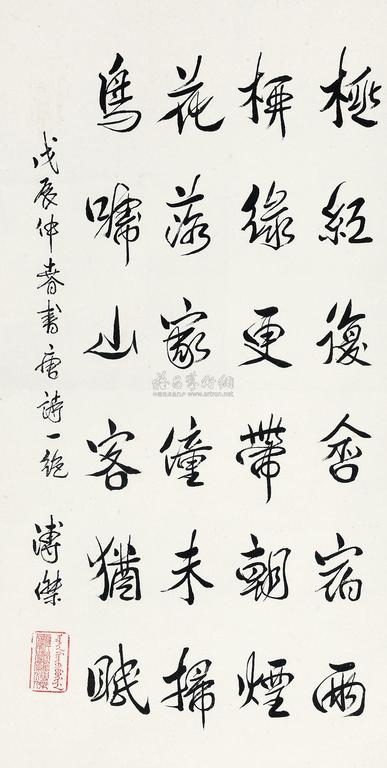 桃紅復含宿雨
柳綠更帶朝煙
花落家僮未掃
鳥啼山客猶眠
戊辰仲春書唐詩一絶 溥傑
www.artron.net